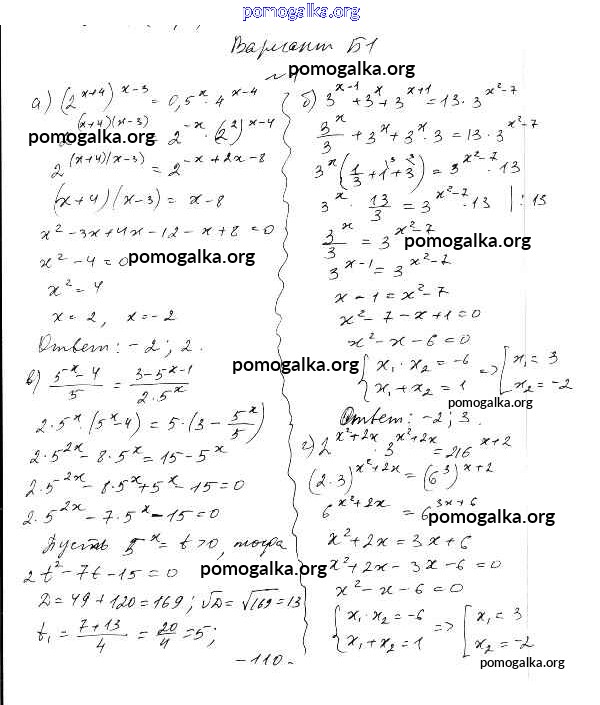 pomogalka.org
Вариант Б1
pomogalka.org
№1
а) (2^(x+4))^(x-3) = 0,5^x · 4^(x-4)
2^((x+4)(x-3)) = 2^(-x) · (2^2)^(x-4)
pomogalka.org
2^((x+4)(x-3)) = 2^(-x+2x-8)
(x+4)(x-3) = x-8
x^2-3x+4x-12-x+8=0
x^2-4=0
pomogalka.org
x^2=4
x=2, x=-2
Ответ: -2; 2.
в) (5^x-4)/5 = (3-5^(x-1))/(2·5^x)
2·5^x·(5^x-4) = 5·(3-5^x/5)
2·5^(2x)-8·5^x=15-5^x
2·5^(2x)-8·5^x+5^x-15=0
2·5^(2x)-7·5^x-15=0
Пусть 5^x=t>0, тогда
2t^2-7t-15=0
pomogalka.org
D=49+120=169; √D=√169=13
t₁=(7+13)/4=20/4=5;
б) 3^(x-1)+3^x+3^(x+1)=13·3^(x^2-7)
3^x/3+3^x+3^x·3=13·3^(x^2-7)
3^x(1/3+1+3)=3^(x^2-7)·13
3^x·13/3=3^(x^2-7)·13 |:13
3^x/3=3^(x^2-7)
pomogalka.org
3^(x-1)=3^(x^2-7)
x-1=x^2-7
x^2-7-x+1=0
x^2-x-6=0
pomogalka.org
{x₁·x₂=-6 => [x₁=3
{x₁+x₂=1 [x₂=-2
pomogalka.org
Ответ: -2; 3.
г) 2^(x^2+2x)·3^(x^2+2x)=216^(x+2)
(2·3)^(x^2+2x)=(6^3)^(x+2)
6^(x^2+2x)=6^(3x+6)
pomogalka.org
x^2+2x=3x+6
x^2+2x-3x-6=0
x^2-x-6=0
{x₁·x₂=-6 => [x₁=3
{x₁+x₂=1 [x₂=-2
pomogalka.org
-110-